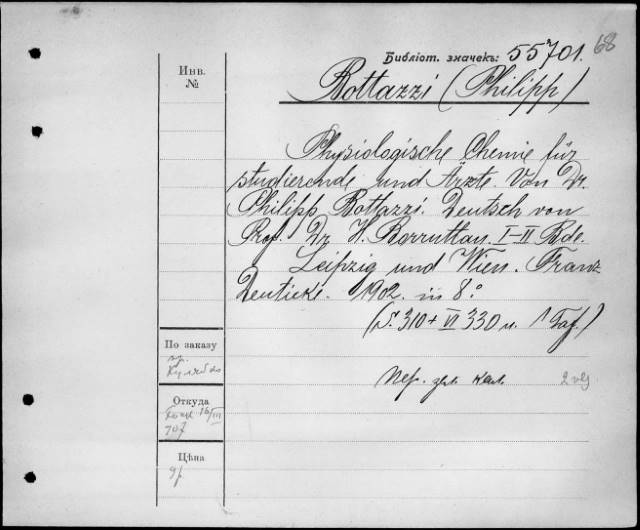 Библіот. значекъ: 55701. 68
Инв.
№
Bottazzi (Philipp)
Physiologische Chemie für
studierende und Ärzte. Von Dr.
Philipp Bottazzi. Deutsch von
Prof. Dr H. Borruttau. I-II Bde.
Leipzig und Wien. Franz
Deuticke. 1902. in 8º
(S. 310 + VI 330 u. 1 Taf.)
По заказу
пр.
Кулябко
Пер. для кат. 2 vlj
Откуда
16/III
907
Цѣна